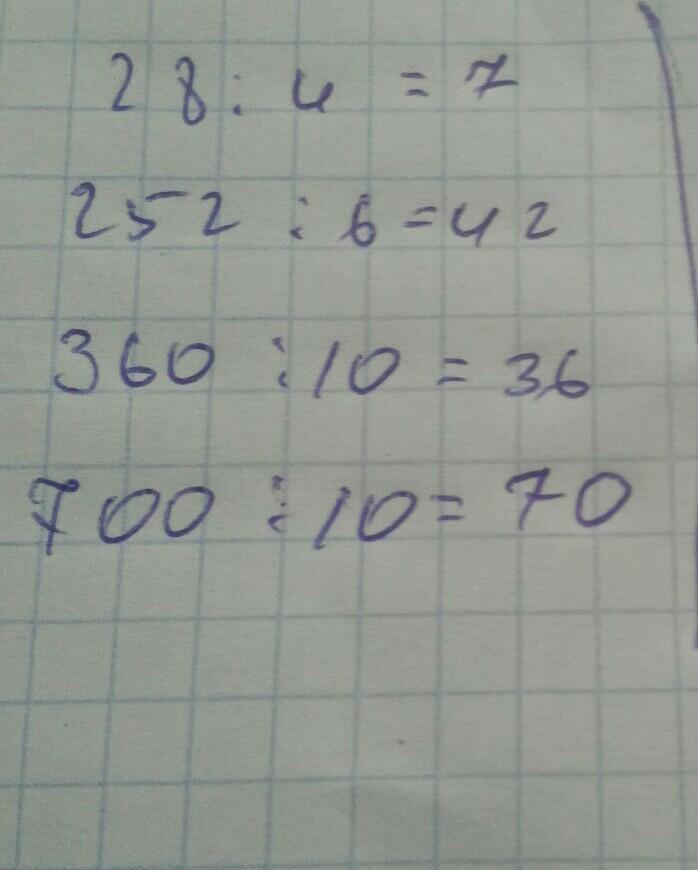 28 : 4 = 7
252 : 6 = 42
360 : 10 = 36
700 : 10 = 70